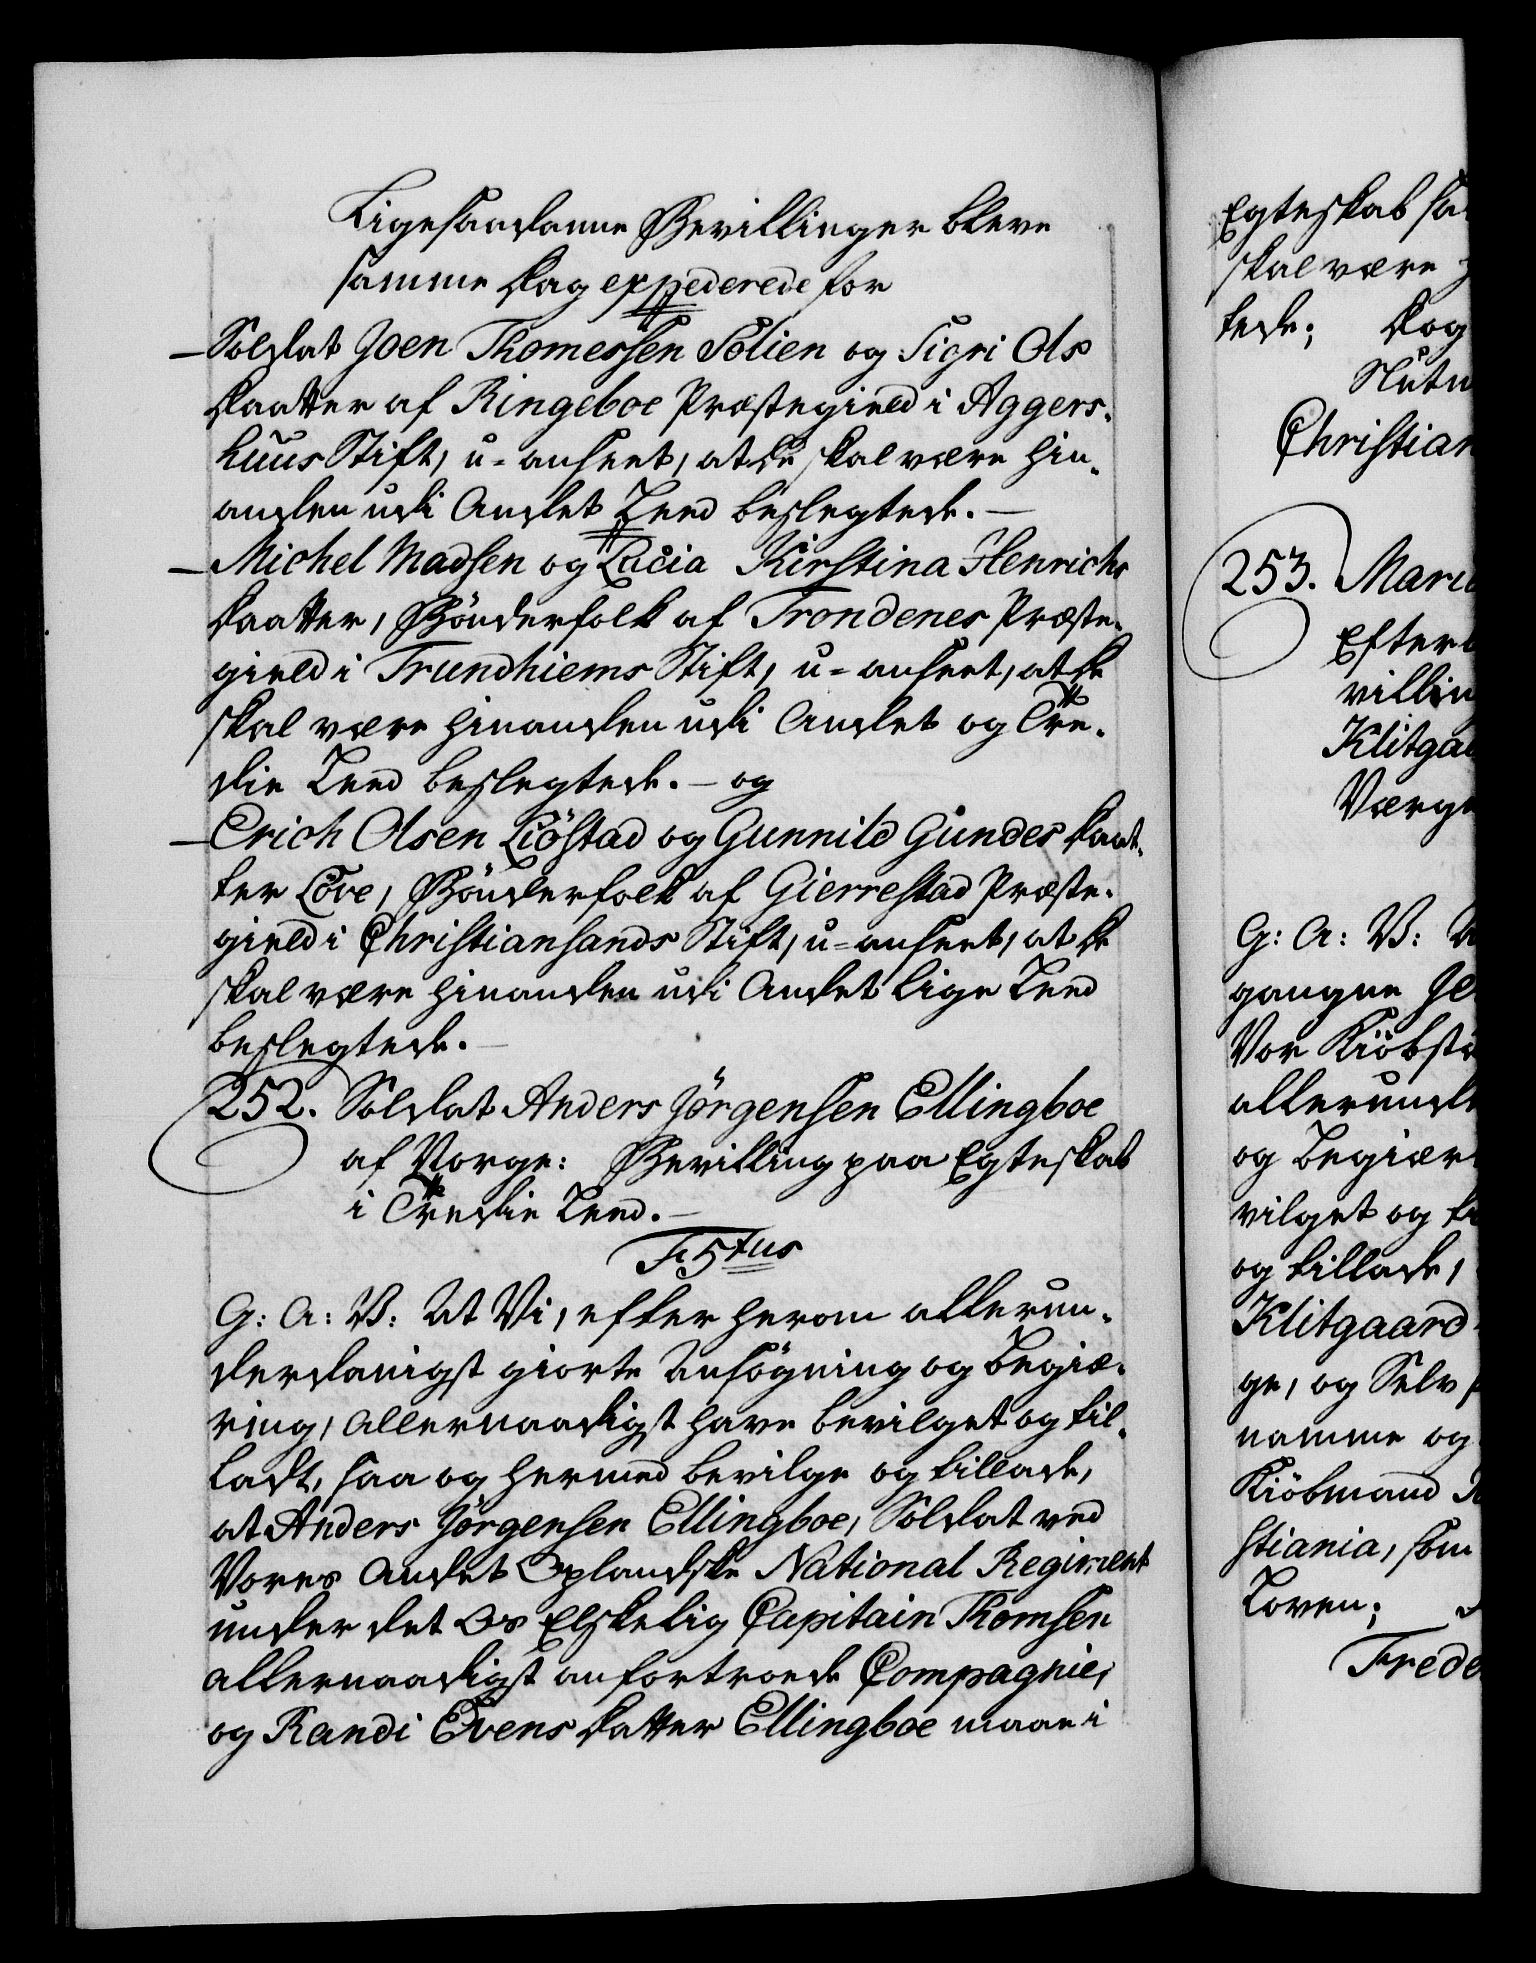 Ligesaadanne Bevillinger bleve
samme dag expederede for
– Soldat Joen Thomessen Solien og Sigri Ols
daatter af Ringeboe Præstegield i Aggers-
huus Stift, u-anseet, at de skal være hin-
anden udi Andet Leed beslegtede. –
– Michel Madsen og Lucia Kirstina Henrichs
daatter, Bönderfolk af Trondenes Præste-
gield i Trundhiems Stift, u-anseet, at de
skal være hinanden udi Andet og Tre-
die Leed beslegtede. – og
– Erich Olsen Liöstad og Gunnild Gundes daat-
ter Löve, Bönderfolk af Gierrestad Præste-
gield i Christiansands Stift, u-anseet, at de
skal være hinanden udi Andet lige Leed
beslegtede. –
252. Soldat Anders Jörgensen Ellingboe
af Norge: Bevilling paa Egteskab
i Tredie Leed. –
F. 5tus
G: A: V: At Vi, efter herom allerun-
derdanigst giorte Ansögning og Begiæ-
ring, allernaadigst have bevilget og til-
ladt, saa og hermed bevilge og tillade,
at Anders Jörgensen Ellingboe, Soldat ved
Vores Andet Oplandske National Regiment
under det Os Elskelig Capitain Thomsen
allernaadigst anfortroede Compagnie,
og Randi Evens datter Ellingboe maae i
Egteskab sa
skal være
tede; dog
Christian
253.
Efter
villin
Klitga
Værge
G: A: V:
gangne
Vor Kiöbst
allerund
og Begiær
vilget og
og tillade,
Klitgaard
ge, og Selv
namme og
Kiöbmand
stiania, som
Loven;
Frede